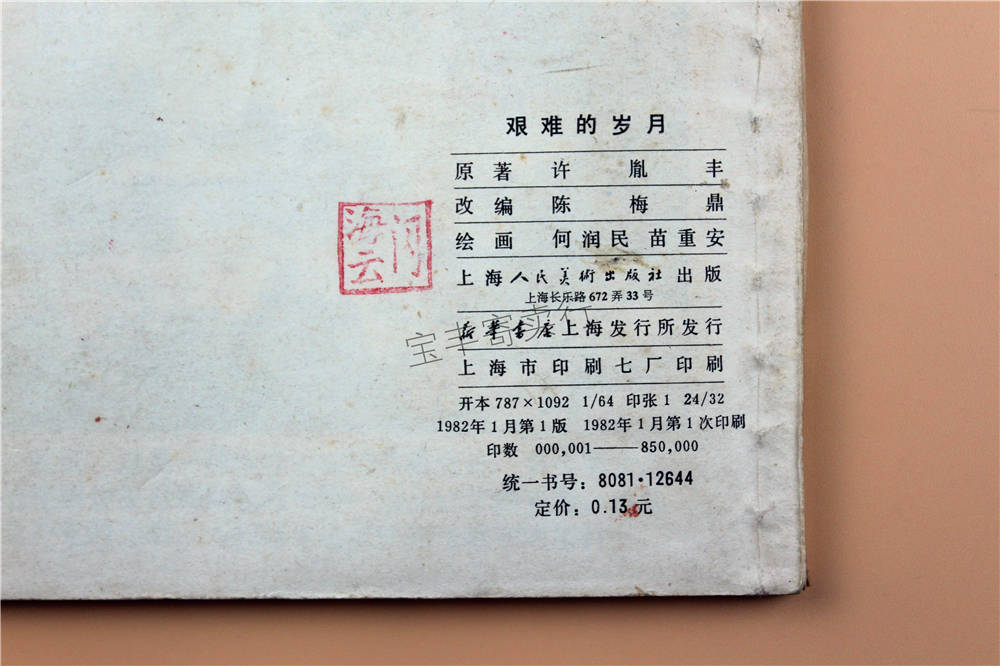 艰难的岁月
原著 许胤丰
改编 陈梅鼎
绘画 何润民 苗重安
上海人民美術出版社出版
上海长乐路672弄33号
新华书店上海发行所发行
上海市印刷七厂印刷
开本 787×1092 1/64 印张 1 24/32
1982年1月第1版 1982年1月第1次印刷
印数 000,001——850,000
统一书号：8081·12644
定价：0.13元
宝丰寄卖行